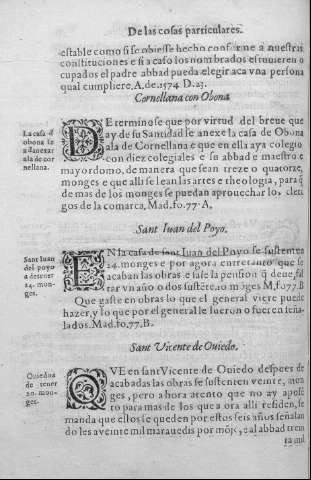 De las cosas particulares.
estable como si se obiesse hecho conforme a nuestras
constituciones e si a caso los nombrados estuuieren o
cupados el padre abbad pueda elegir aca vna persona
qual cumpliere, A. de. 1574 D. 23.
Cornellana con Obona
La casa đ
obona se
a đanexar
ala de cor
nellana.
DE termino se que por virtud del breue que
ay de su Santidad se anexe la casa de Obona
ala de Cornellana e que en ella aya colegio
con diez colegiales e su abbad e maestro e
mayordomo, de manera que sean treze o quatorze,
monges e que alli se lean las artes e theologia, para q̃
de mas de los monges se puedan aprouechar los cleri
gos de la comarca, Mad. fo. 77. A,
Sant Iuan del Poyo.
Sant Iuan
del poyo
a de tener
24. mon-
ges.
EN la casa de sant Iuan del Poyo se sustenten
24. monges e por agora entretanto que se
acaban las obras e sale la pension q̃ deue, sustẽ
tar vn año o dos sustẽtẽ. 10 mõges M, fo, 77. B
Que gaste en obras lo que el general viere puede
hazer, y lo que por el general le fueron o fueren seña-
lados. Mad. fo, 77. B.
Sant Vicente de Ouiedo.
Ouiedo a
de tener
20. mon-
ges.
QVE en sant Vicente de Ouiedo despues de
acabadas las obras se sustenten veinte, mon
ges, pero a hora atento que no ay aposẽ
to para mas de los que a ora alli residen, se
manda que ellos se queden por estos seis años señalan
do les a veinte mil marauedis por mõje, e al abbad tren
ta mil